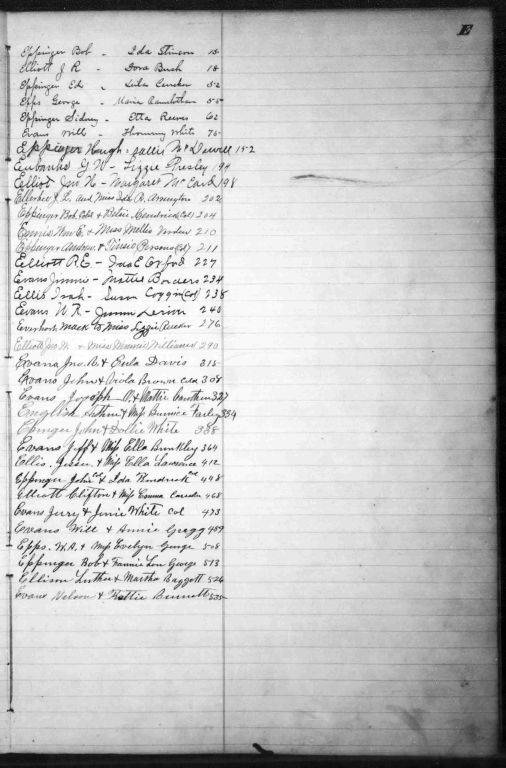 E
Eppinger Bob - Ida Stinson 18
Elliott J R - Dora Bush 18
Eppinger Ed - Lula 52
Epps George - Maria 55
Eppinger Sidney - Etta Reeves 62
Evans Will - White 75
Eppinger Hough - Sallie McDowell 152
Eubanks G W - Lizzie Presley 194
Elliot Jno H - Margaret McCard 198
Ellerbee J. L. and Miss Ida R. Arrington 202
Eppinger Bob Cold & Kendrick (Col) 204
Ennis & Miss Mellis 210
Eppinger Andrew & Pinsie Persons (Col) 211
Elliott R E - Ida E 227
Evans Jimmie - Mattie Borders 234
Ellis Irah - Susan Coggin (Col) 238
Evans W R - 240
Everhart Mack to Miss Lizzie 276
Elliott Jno. W. & Miss Minnie Williams 290
Evans Jno. R. & Eula Davis 315
Evans John & Viola Brown Cold 308
Evans Joseph O. & Mattie 327
English Arthur & Miss Bernice Farley 334
Epinger John & Dollie White 338
Evans Jeff & Miss Ella Brinkley 364
Ellis. Jesse. & Miss Ella Lawrence 412
Eppinger John & Ida Kendrick 448
Elliott Clifton & Miss Emma 468
Evans Jerry & Janie White Col 473
Evans Will & Annie Gragg 489
Epps. W. A. & Miss Evelyn George 508
Eppinger Bob & Fannie Lou George 513
Ellison Luther & Martha Baggott 526
Evans Nelson & Hattie Bennett 535